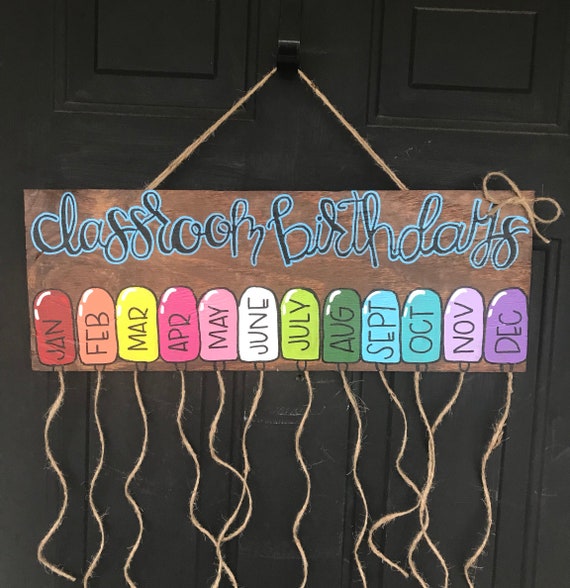 classroom birthdays
JAN FEB MAR APR MAY JUNE JULY AUG SEPT OCT NOV DEC